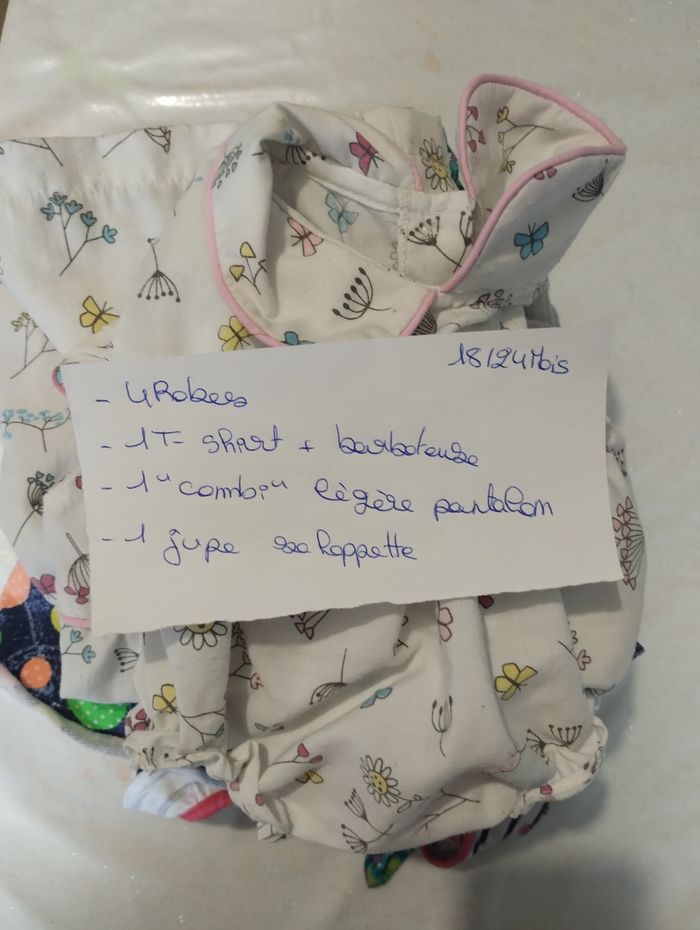 18/24 Mois
- 4 Robes
- 1 T-shirt + barboteuse
- 1 "combi" légère pantalon
- 1 jupe saloppette